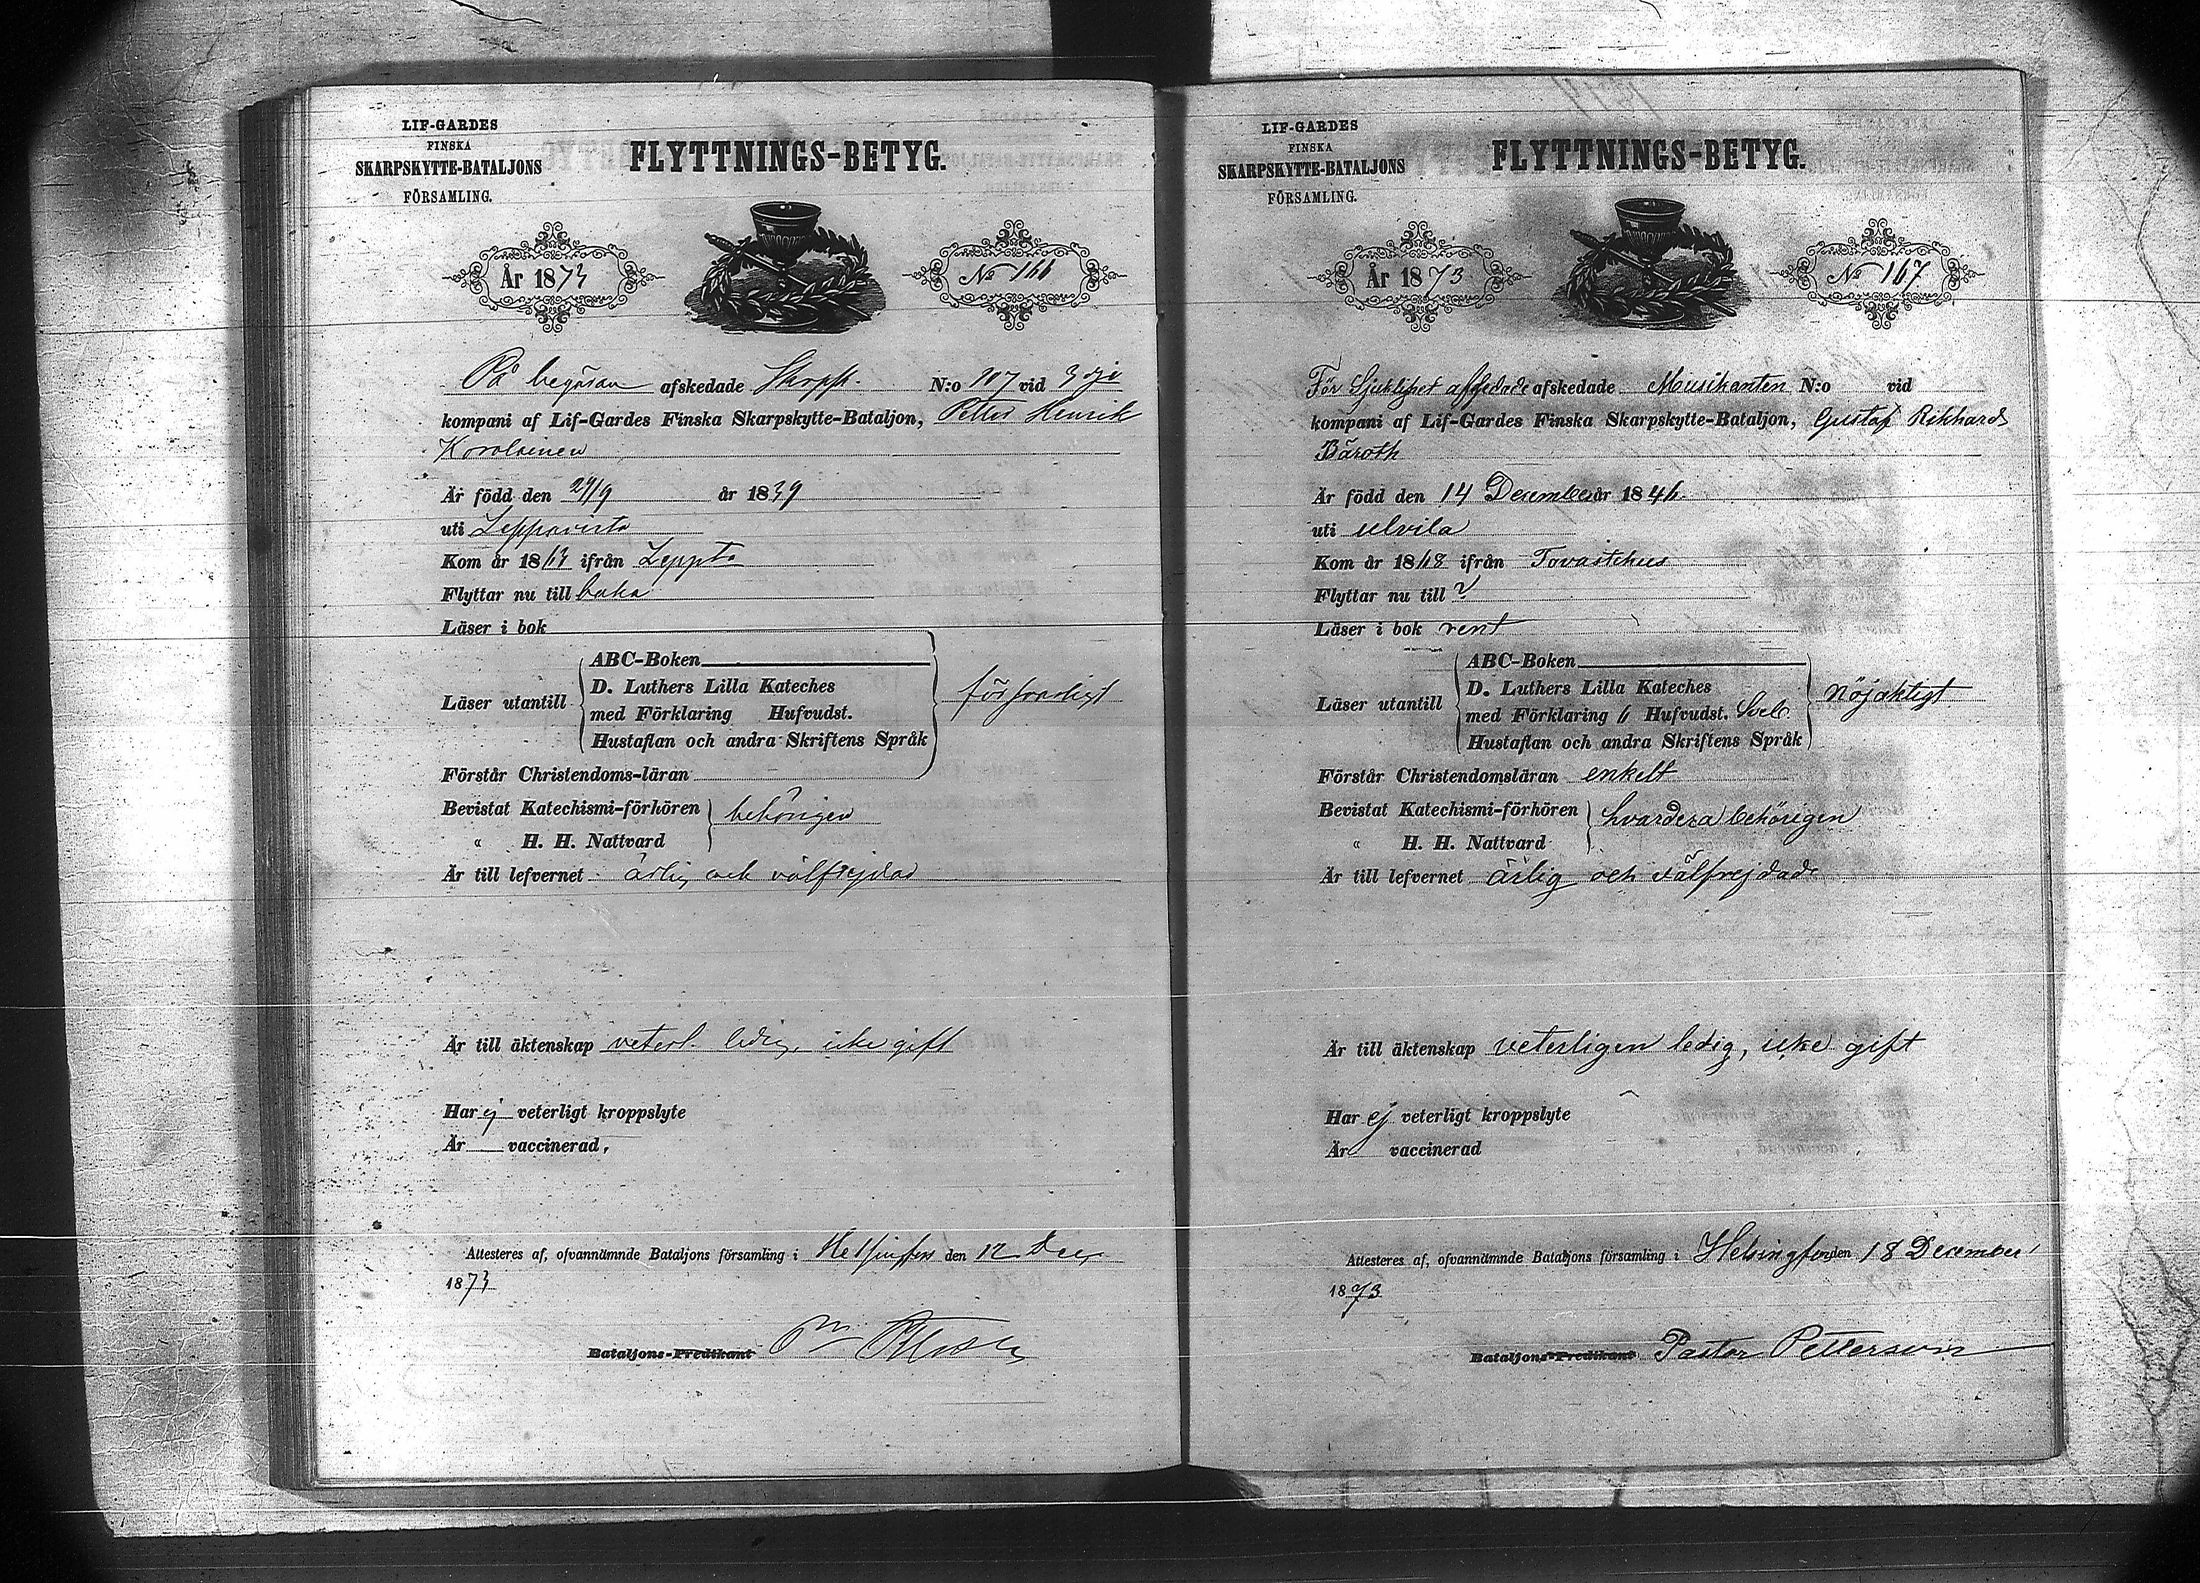 LIF-GARDES
FINSKA
SKARPSKYTTE-BATALJONS
FÖRSAMLING.
FLYTTNINGS-BETYG.
År 1873
No 166
På begäran afskedade Skarpsk. N:o 107 vid 3dje
kompani af Lif-Gardes Finska Skarpskytte-Bataljon, Petter Henrik
Korolainen
Är född den 29/9 år 1839
uti Leppävirta
Kom år 1863 ifrån Leppta
Flyttar nu till baka
Läser i bok
Läser utantill
ABC-Boken
D. Luthers Lilla Kateches
med Förklaring Hufvudst.
Hustaflan och andra Skriftens Språk
försvarligt
Förstår Christendoms-läran
Bevistat Katechismi-förhören
« H. H. Nattvard
behörigen
Är till lefvernet ärlig och välfrejdad
Är till äktenskap veterl. ledig, icke gift
Har ej veterligt kroppslyte
Är vaccinerad,
Attesteres af, ofvannämnde Bataljons församling i Helsingfors den 12 Decr
1873
Bataljons-Predikant
LIF-GARDES
FINSKA
SKARPSKYTTE-BATALJONS
FÖRSAMLING.
FLYTTNINGS-BETYG.
År 1873
No 167
För Sjuklighet afskedade Musikanten N:o vid
kompani af Lif-Gardes Finska Skarpskytte-Bataljon, Gustaf Rikhard
Bäroth
Är född den 14 December år 1846
uti Ulvila
Kom år 1868 ifrån Tavastehus
Flyttar nu till ?
Läser i bok rent
Läser utantill
ABC-Boken
D. Luthers Lilla Kateches
med Förklaring 6 Hufvudst.
Hustaflan och andra Skriftens Språk
Nöjaktigt
Förstår Christendomsläran enkelt
Bevistat Katechismi-förhören
« H. H. Nattvard
hvardera behörigen
Är till lefvernet ärlig och välfrejdade
Är till äktenskap veterligen ledig, icke gift
Har ej veterligt kroppslyte
Är vaccinerad
Attesteres af, ofvannämnde Bataljons församling i Helsingfors den 18 December
1873
Bataljons-Predikant Pastor Petterson